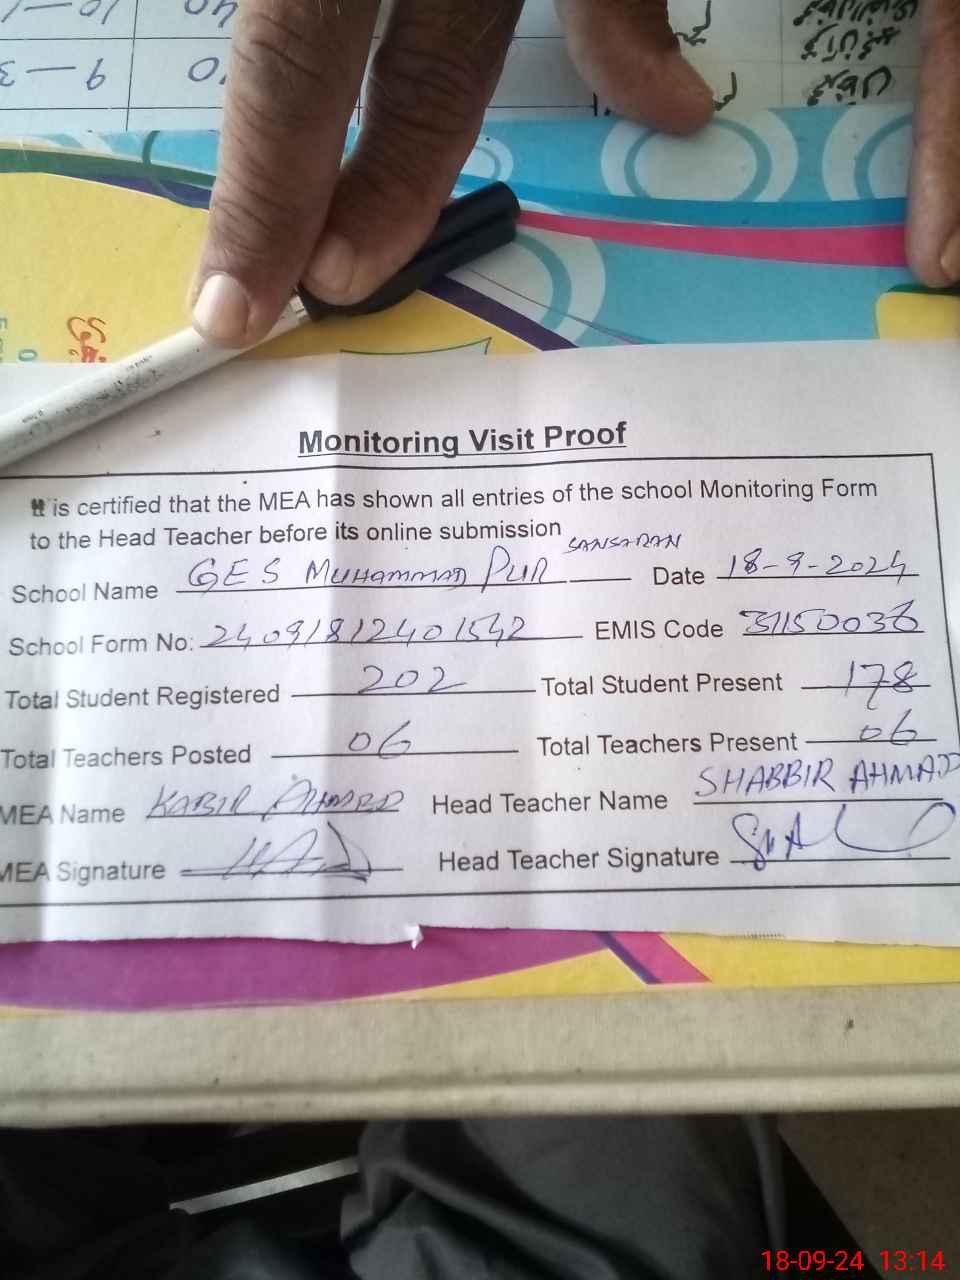 40 10-1
10 9-3
Monitoring Visit Proof
It is certified that the MEA has shown all entries of the school Monitoring Form
to the Head Teacher before its online submission
School Name GES MUHAMMAD PUR SANSARAN Date 18-9-2024
School Form No: 24091812401542 EMIS Code 31150036
Total Student Registered 202 Total Student Present 178
Total Teachers Posted 06 Total Teachers Present 06
MEA Name KABIR AHMED Head Teacher Name SHABBIR AHMAD
MEA Signature Head Teacher Signature
18-09-24 13:14